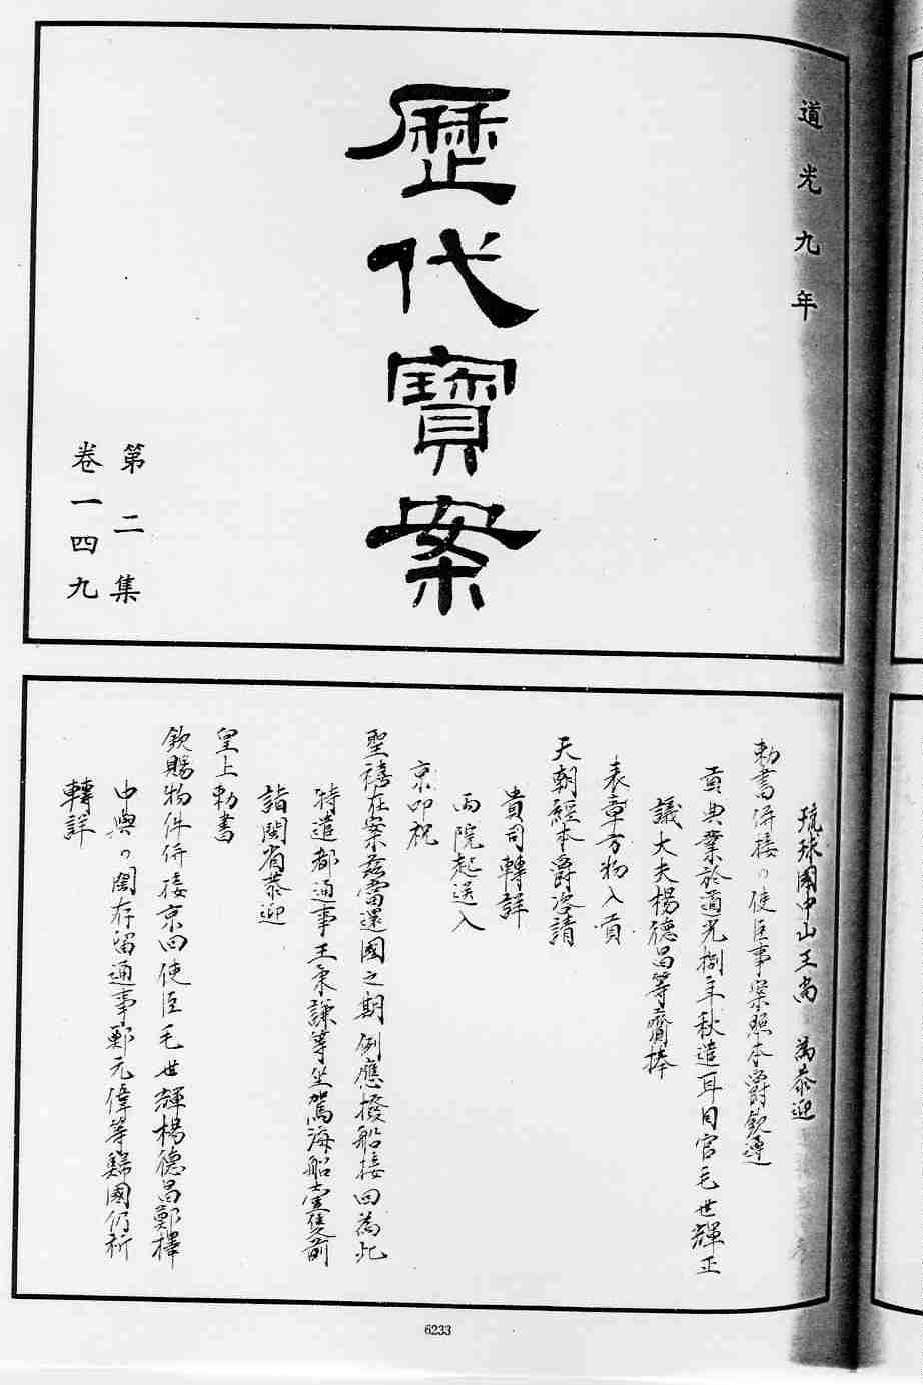 道光九年
歷代寶案
第二集
卷一四九
琉球國中山王尚　為恭迎
勅書併接回使臣事案照本爵欽遵
貢典業於道光捌年秋遣耳目官毛世輝正
議大夫楊德昌等齎捧
表章方物入貢
天朝經本爵咨請
貴司轉詳
兩院起送入
京叩祝
聖禧在案茲當還國之期例應撥船接回為此
特遣都通事王秉謙等坐駕海船壹隻前
詣閩省恭迎
皇上勅書
欽賜物件併接京回使臣毛世輝楊德昌鄭擇
中與在閩存留通事鄭元偉等歸國仍祈
轉詳
6233